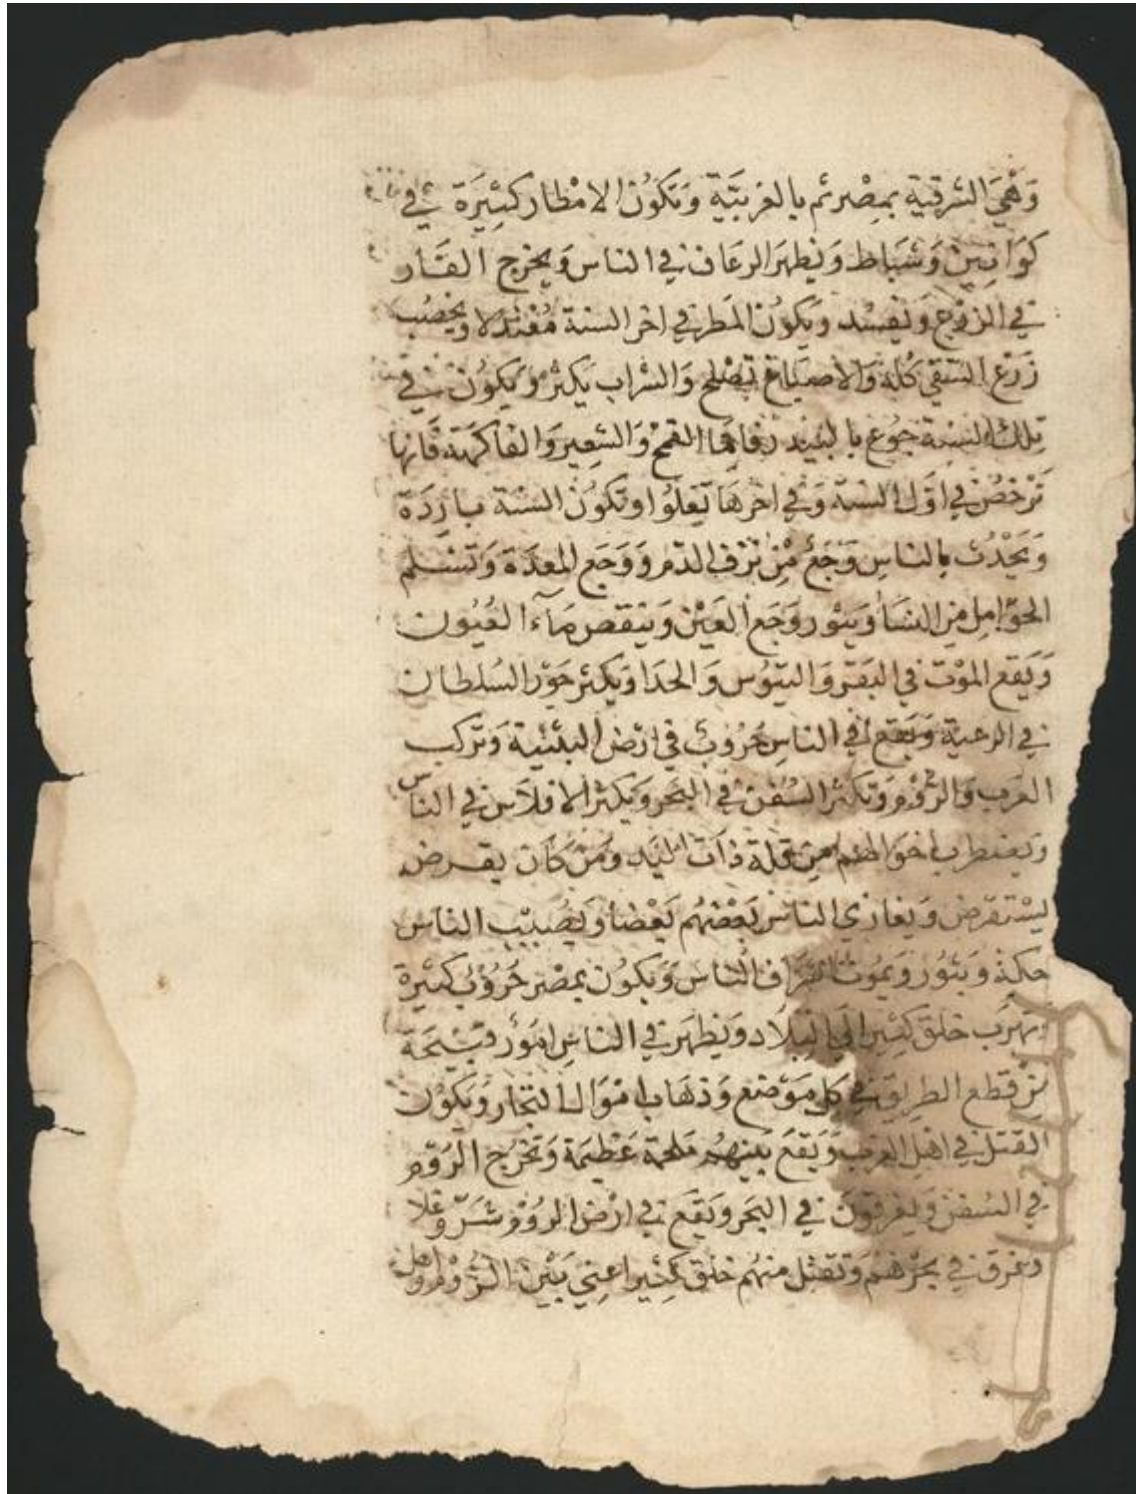 وَهْيَ الشرقية بمصْر ثم بالغربيَّة وَتكوُن الامْطار كثِيرَة في
كوَانِين وَشبَاط وَيظهرَ الرعاف في الناس وَيخرج الفَار
في الزرْوع وَيفسْد وَيكوُن المَطر في اخر السنة مُعْتدلا ويخصُب
زَرْع السَقي كُله وَالاصبَاغ تصْلح وَالشراب يَكثرْ وَيكوُن في
تِلك السَنة جوُع القمحْ وَالشعِير وَالفاكهَة فَانها
تَرْخصُ في اوَّل السَنة وَفي اخرهَا يَغلوُا وتكوُن السَنة بارِدَة
وَيَحْدُث بالناسِ وَجَعْ مِنْ نزف الدَم وَوَجَع المعِدَة وَتسْلم
الحوَامِل مِن النسَا وَيثوْر وَجَع العَيْن وَينقص مَآء العُيُون
وَيَقع الموْت في البَقَر وَالتيوُس وَالجدَا وَيكثر جَوْر السُلطان
في الرعية وَيَقع في الناسِ حُرُوبْ في ارْض وَترْكب
العَرَب وَالرُوْم وَتكثر السُفن في البَحر وَيَكثر الافلاَس في الناس
وَيضطرب احْوَالهمْ مِن قلة ذَات اليَد وَمَنْ كَان يقرض
ليسْتقرض وَيغازي الناس بَعْضهُم بَعْضا وَيُصيْب الناس
حكة وَبثوُر وَيموُت اشرَاف الناس وَيكوُن بمصْر حُرُوبْ كثِيرَة
وَيهرَب خلق كثِير الَي البِلاَد وَيظهَر في الناسِ امُوْر قبيْحَة
مِنْ قطع الطرِيق في كل مَوْضع وَذهَاب امْوَال التجار وَيكوُن
القتل في اهْل العَرب وَيَقعَ بَينهُم ملحمة عَظِيمَة وَتخرُج الرُوْم
في السُفن وَيغرقوُنَ في البَحر وَيَقع في ارْض الروُم شرّ وغلا
وَغرق في بحرْهمْ وَتقتل منهُم خلق كثِير اعني بَيْن الروْم وَاهل